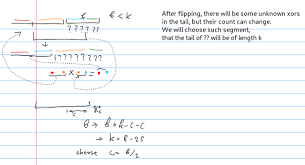 8 < k
????????
After flipping, there will be some unknown xors
in the tail, but their count can change.
We will choose such segment,
that the tail of ?? will be of length k
????????
X =
B → B + k - C - C
→ k + B - 2C
choose C = B/2